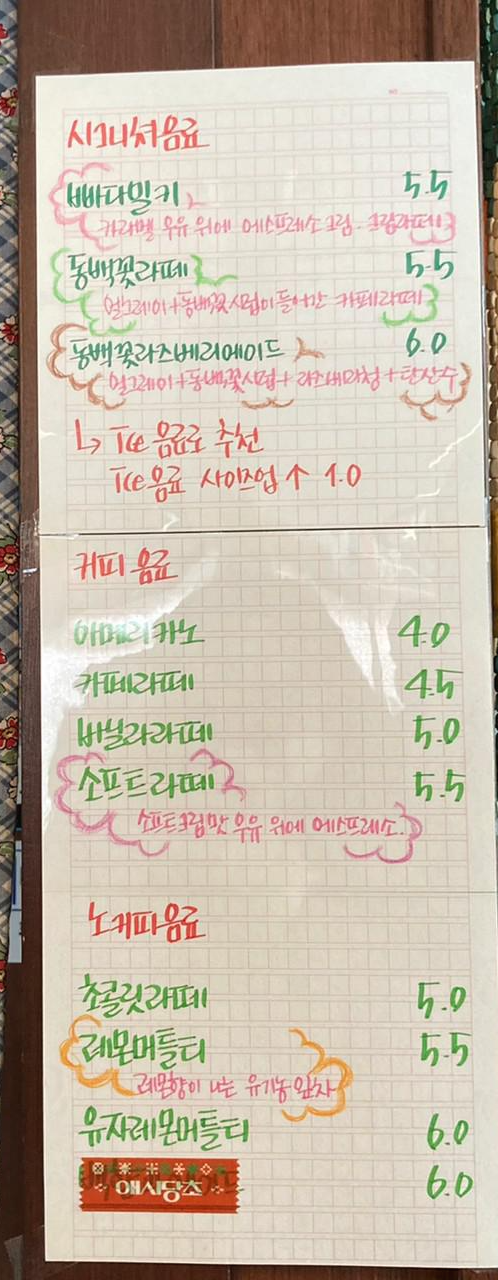 시그니쳐음료
빠다밀키 5.5
카라멜 우유 위에 에스프레소크림. 크림라떼
동백꽃라떼 5.5
얼그레이+동백꽃시럽이 들어간 카페라떼
동백꽃라즈베리에이드 6.0
얼그레이+동백꽃시럽+라즈베리청+탄산수
↳ Ice 음료로 추천
Ice음료 사이즈업↑ 1.0
커피 음료
아메리카노 4.0
카페라떼 4.5
바닐라라떼 5.0
소프트라떼 5.5
소프트크림맛 우유 위에 에스프레소.
노커피음료
초콜릿라떼 5.0
레몬머틀티 5.5
레몬향이 나는 유기농 잎차
유자레몬머틀티 6.0
애시당초 6.0